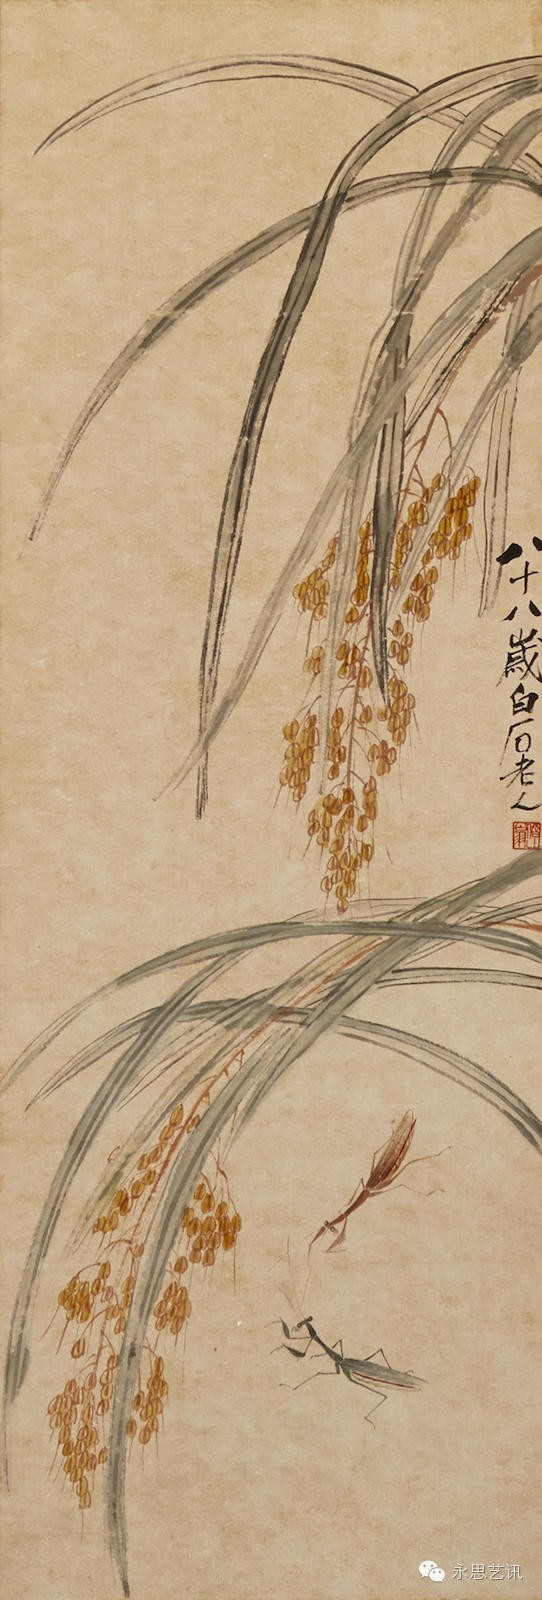 八十八歲白石老人
永思艺讯